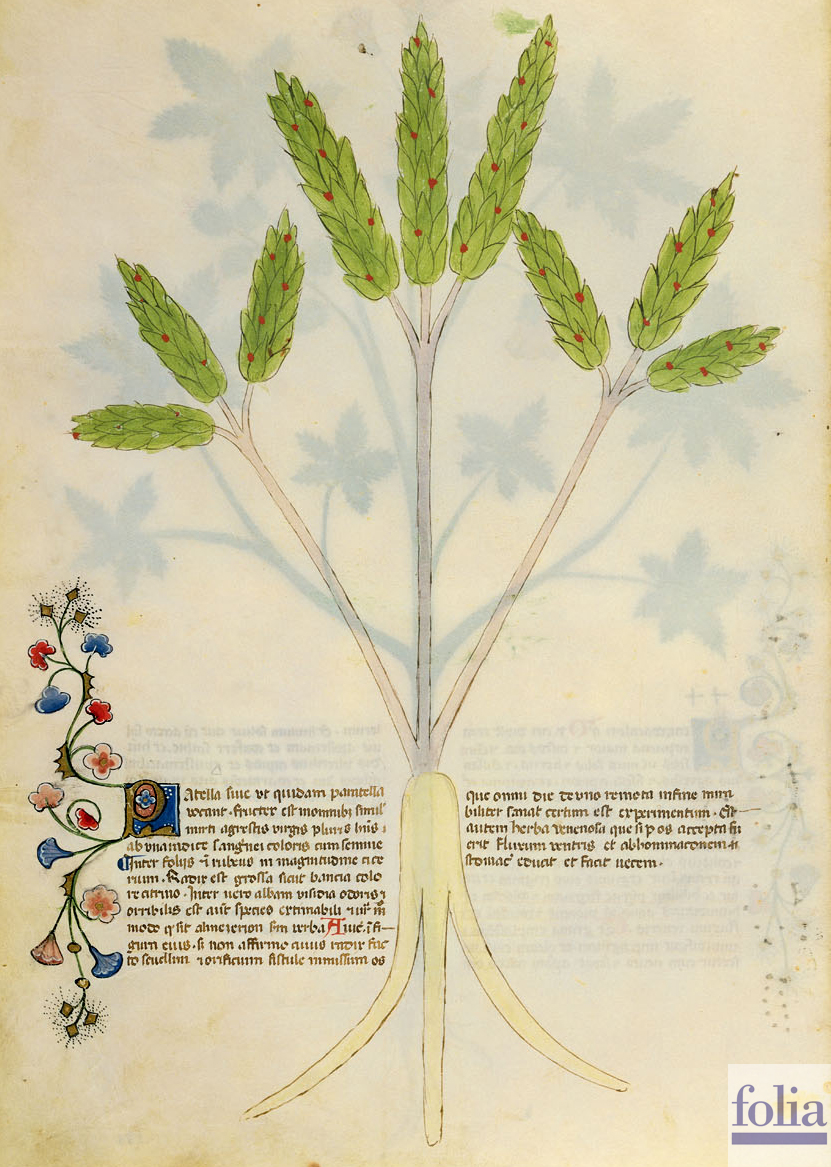 Patella siue vt quidam pantella
vocant. fructex est in omnibus simil
mirti agrestis virgis pluris hñs
ab vna radice sanguei coloris cum semine
Inter folijs rubeus in magnitudine cice
rum. Radix est grossa sicut bancia colo
re citrino. Inter uero albam odoris
orribilis est aut species
modo q sit almezerion sm verba Auic.
gura eius. si non affirmo cuius radix fac
to et orificium fistule inmissum os
que omni die de vno remota in fine mira
biliter sanat certum est experimentum. Est
autem herba venenosa que si p os accepta fu
erit fluxum ventris et abhominationem
stomac educit et facit
folia